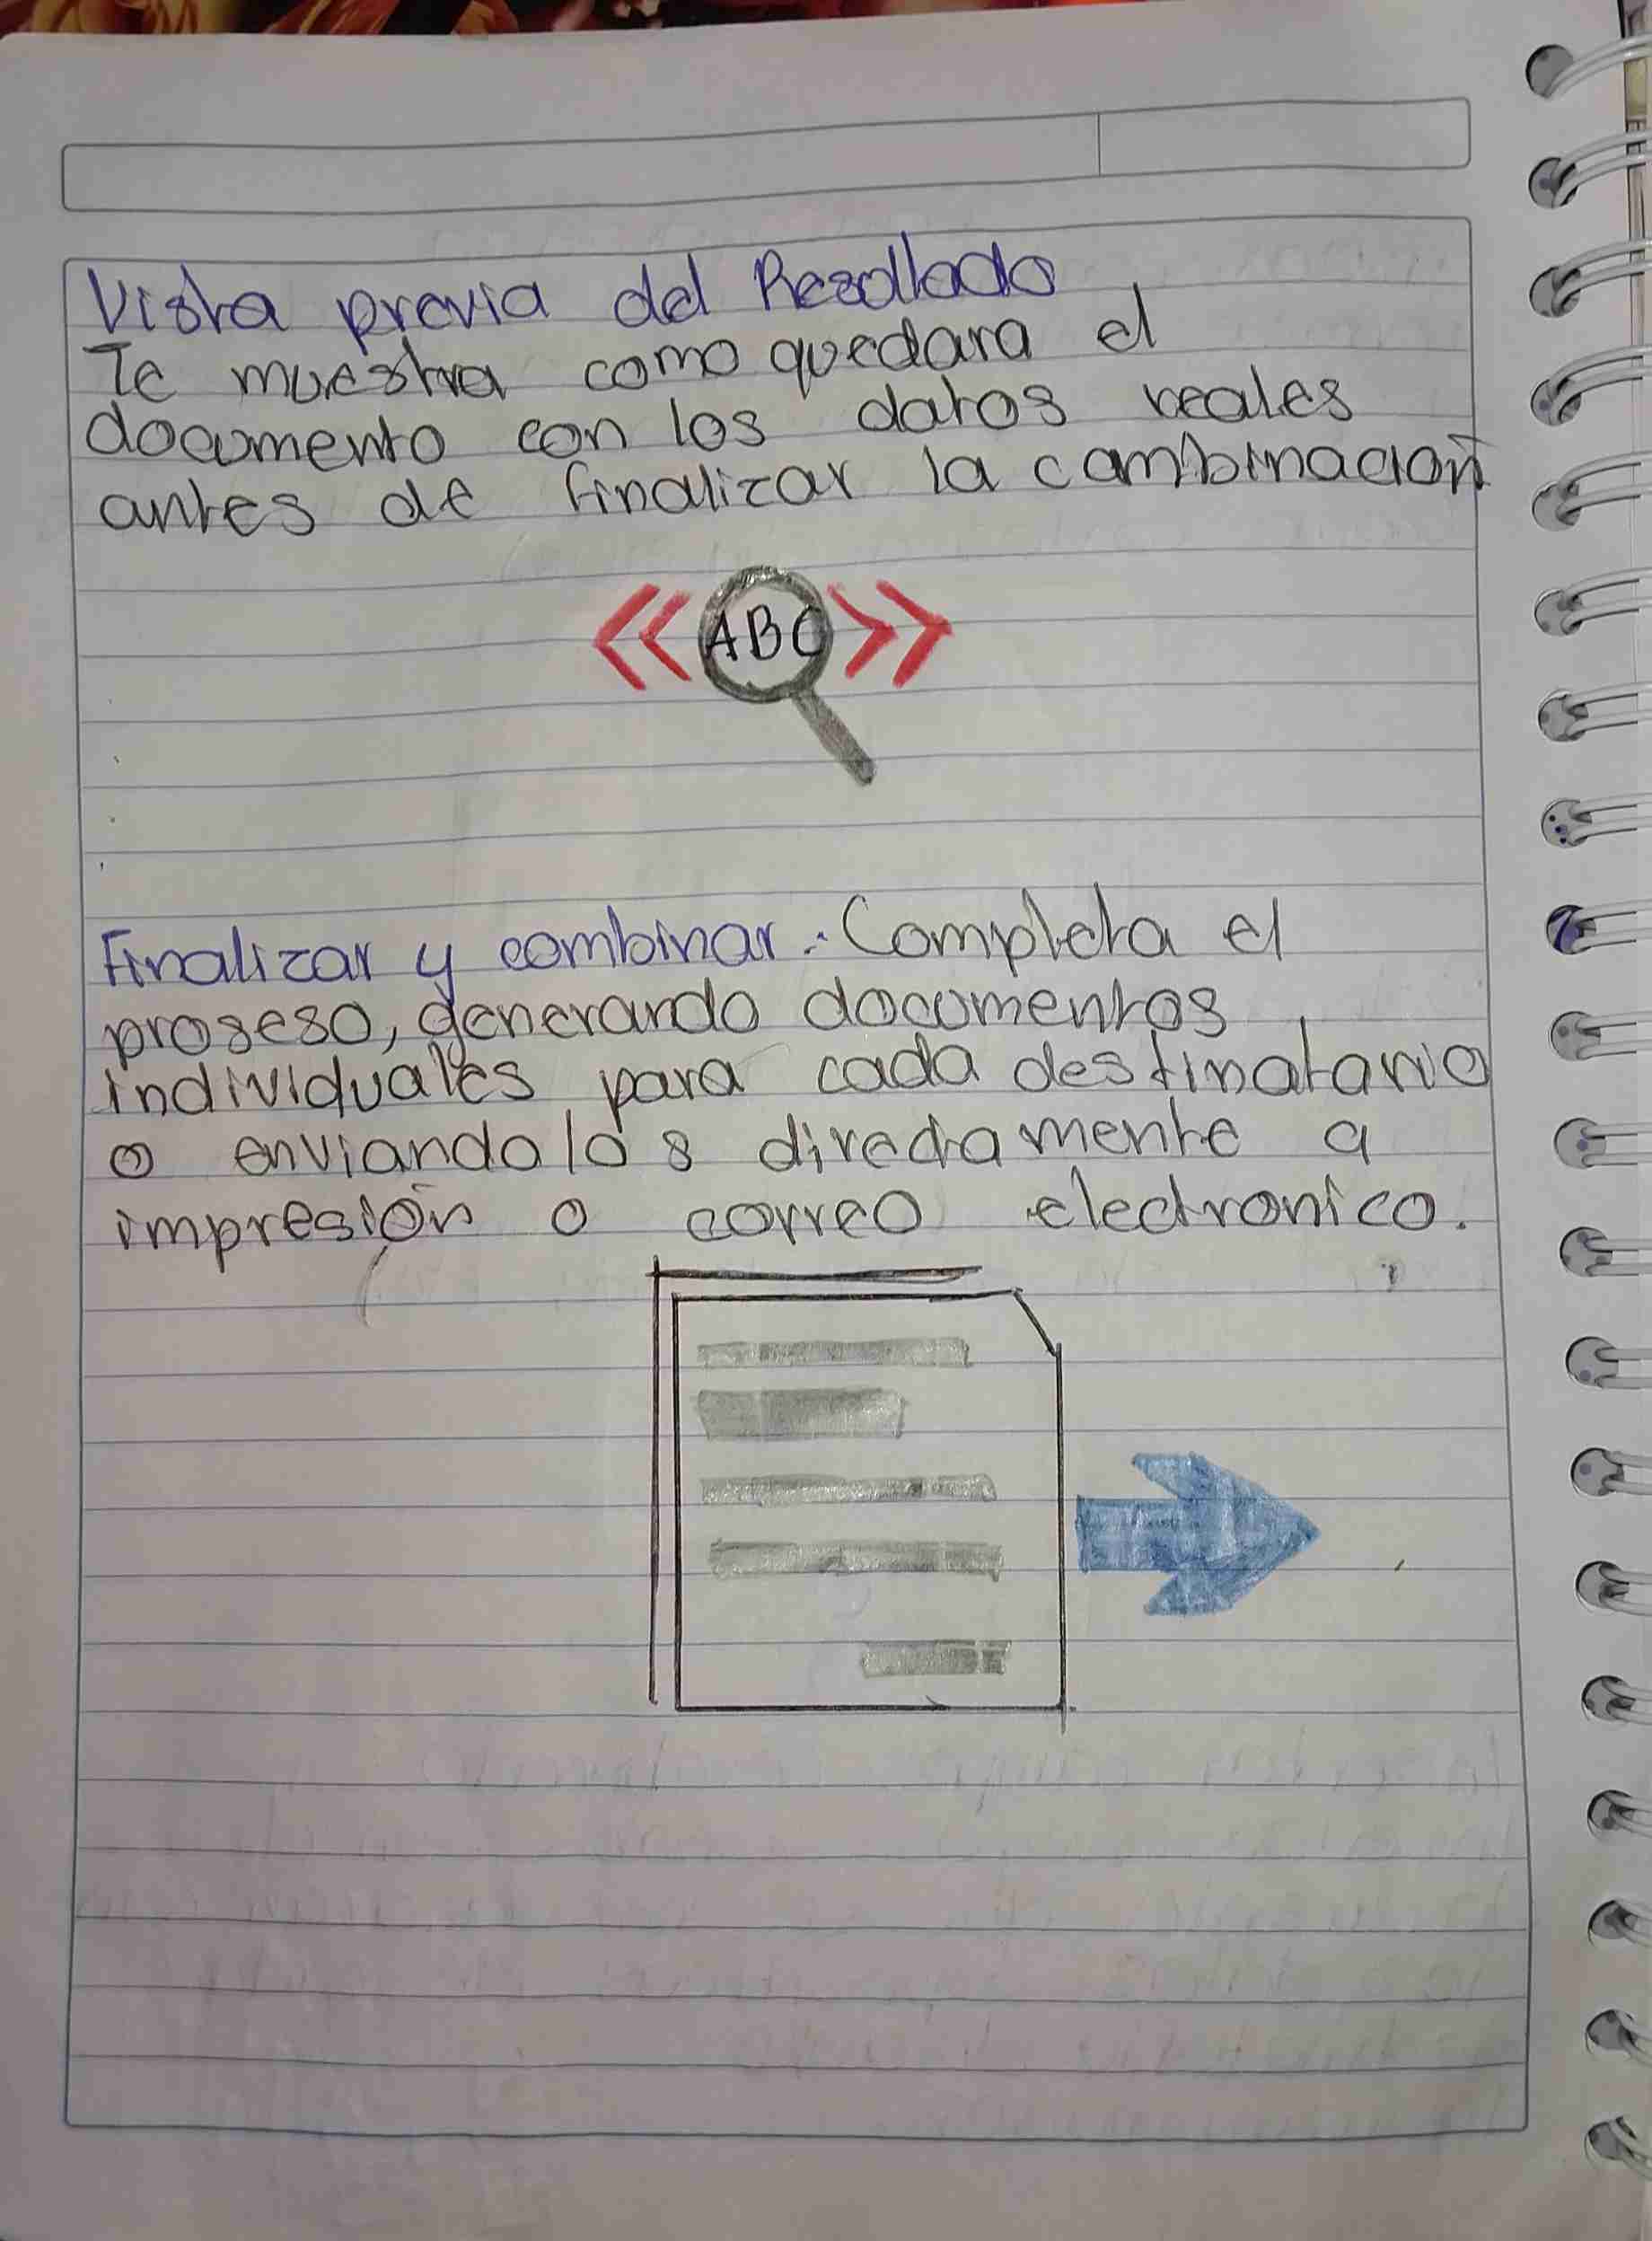 Vista previa del Resultado
Te muestra como quedara el
documento con los datos reales
antes de finalizar la combinación
ABC
Finalizar y combinar.: Completa el
proseso, generando documentos
individuales para cada destinatario
o enviandolos directamente a
impresión o correo electronico.